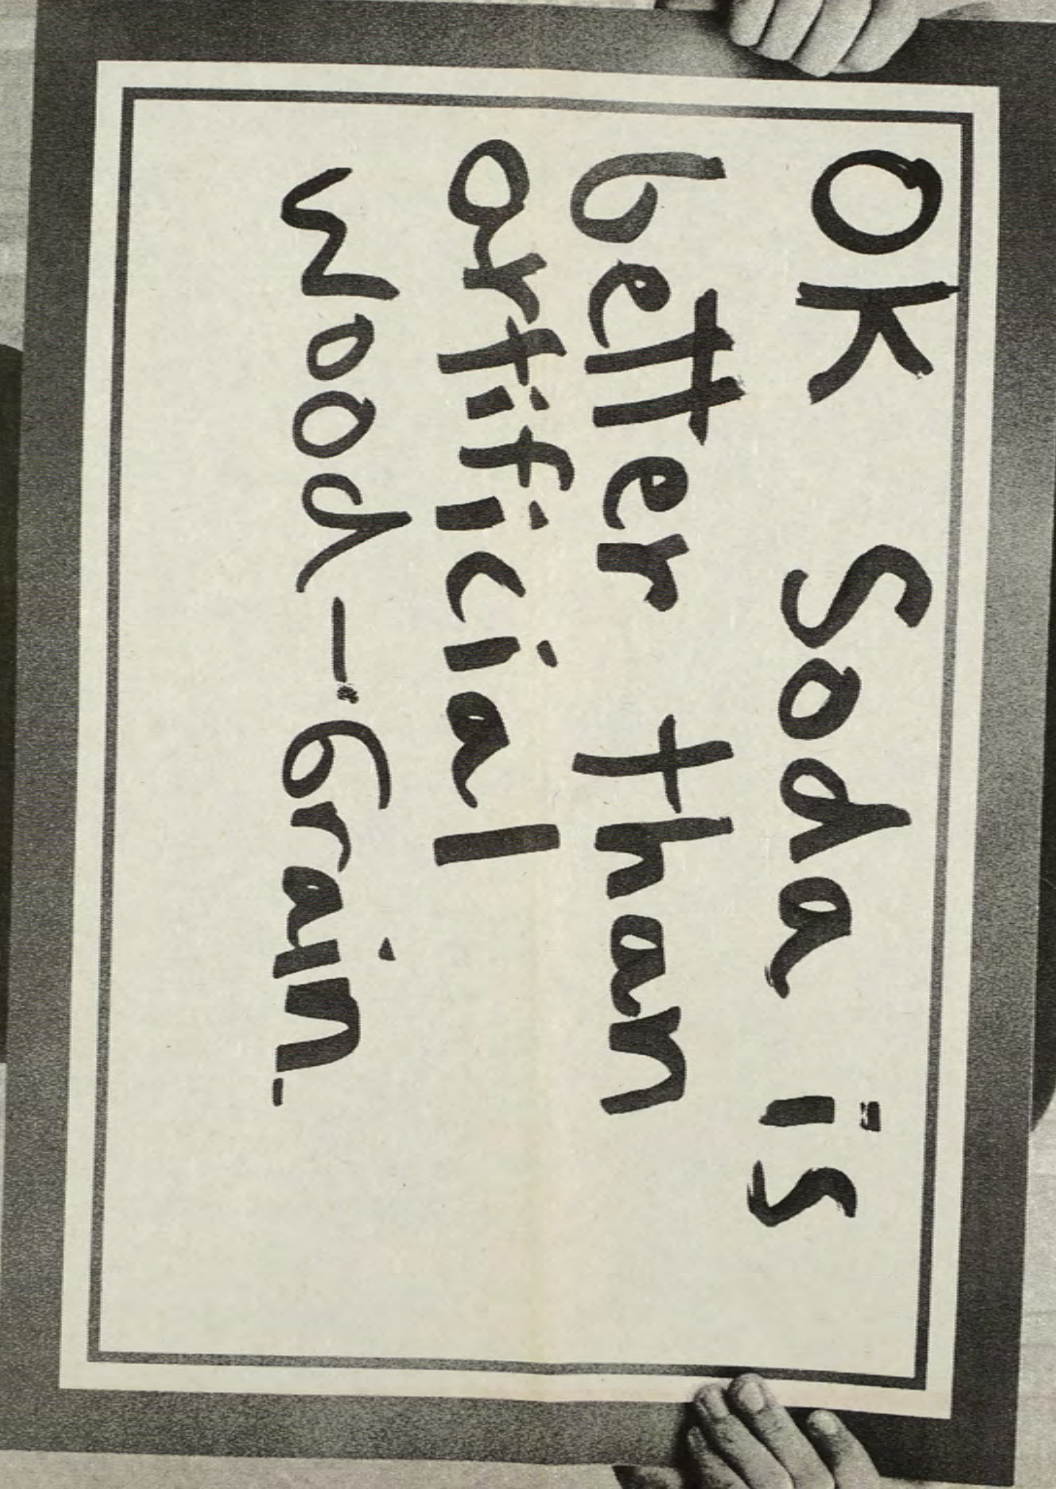 OK Soda is
better than
artificial
wood-Grain.